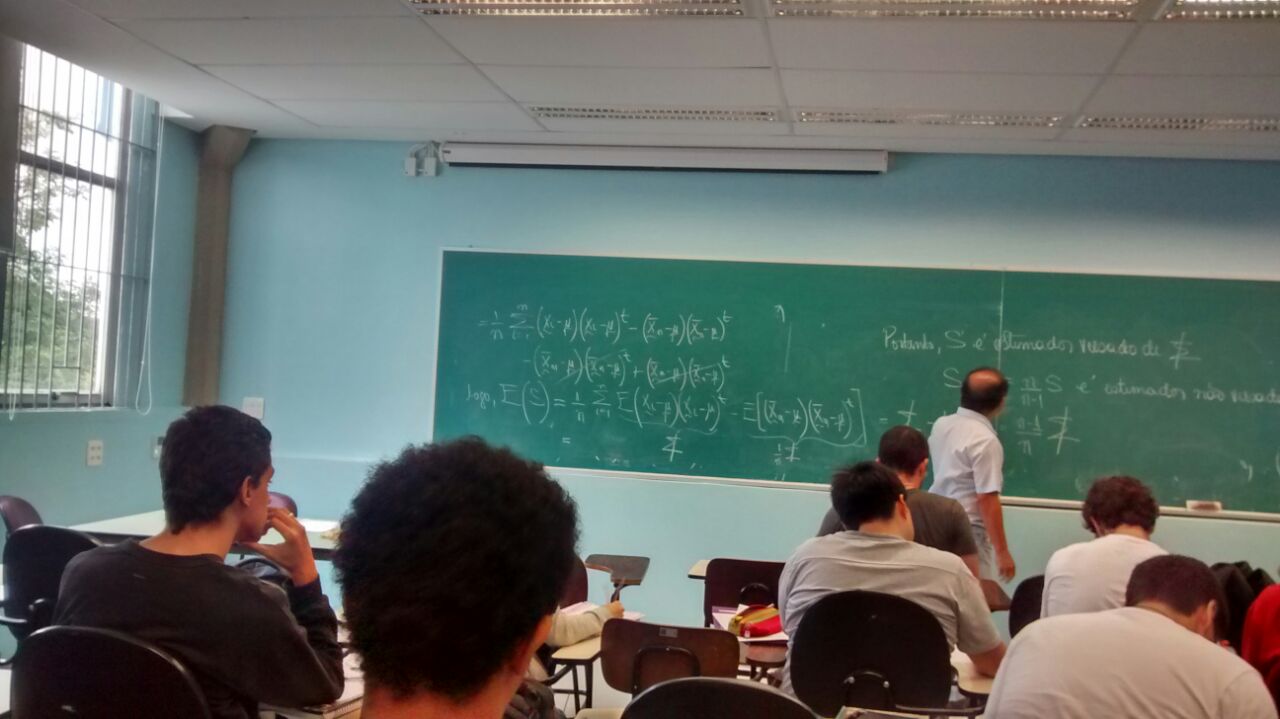 = 1/n Σ_{i=1}^{n} (X_i-μ)(X_i-μ)^t - (X̄_n-μ)(X̄_n-μ)^t
- (X̄_n-μ)(X̄_n-μ)^t + (X̄_n-μ)(X̄_n-μ)^t
logo, E(S) = 1/n Σ_{i=1}^{n} E(X_i-μ)(X_i-μ)^t - E[(X̄_n-μ)(X̄_n-μ)^t] = Σ
= Σ 1/n Σ
Portanto, S é estimador viesado de Σ
S n/n-1 S é estimador não viesado
n-1/n Σ